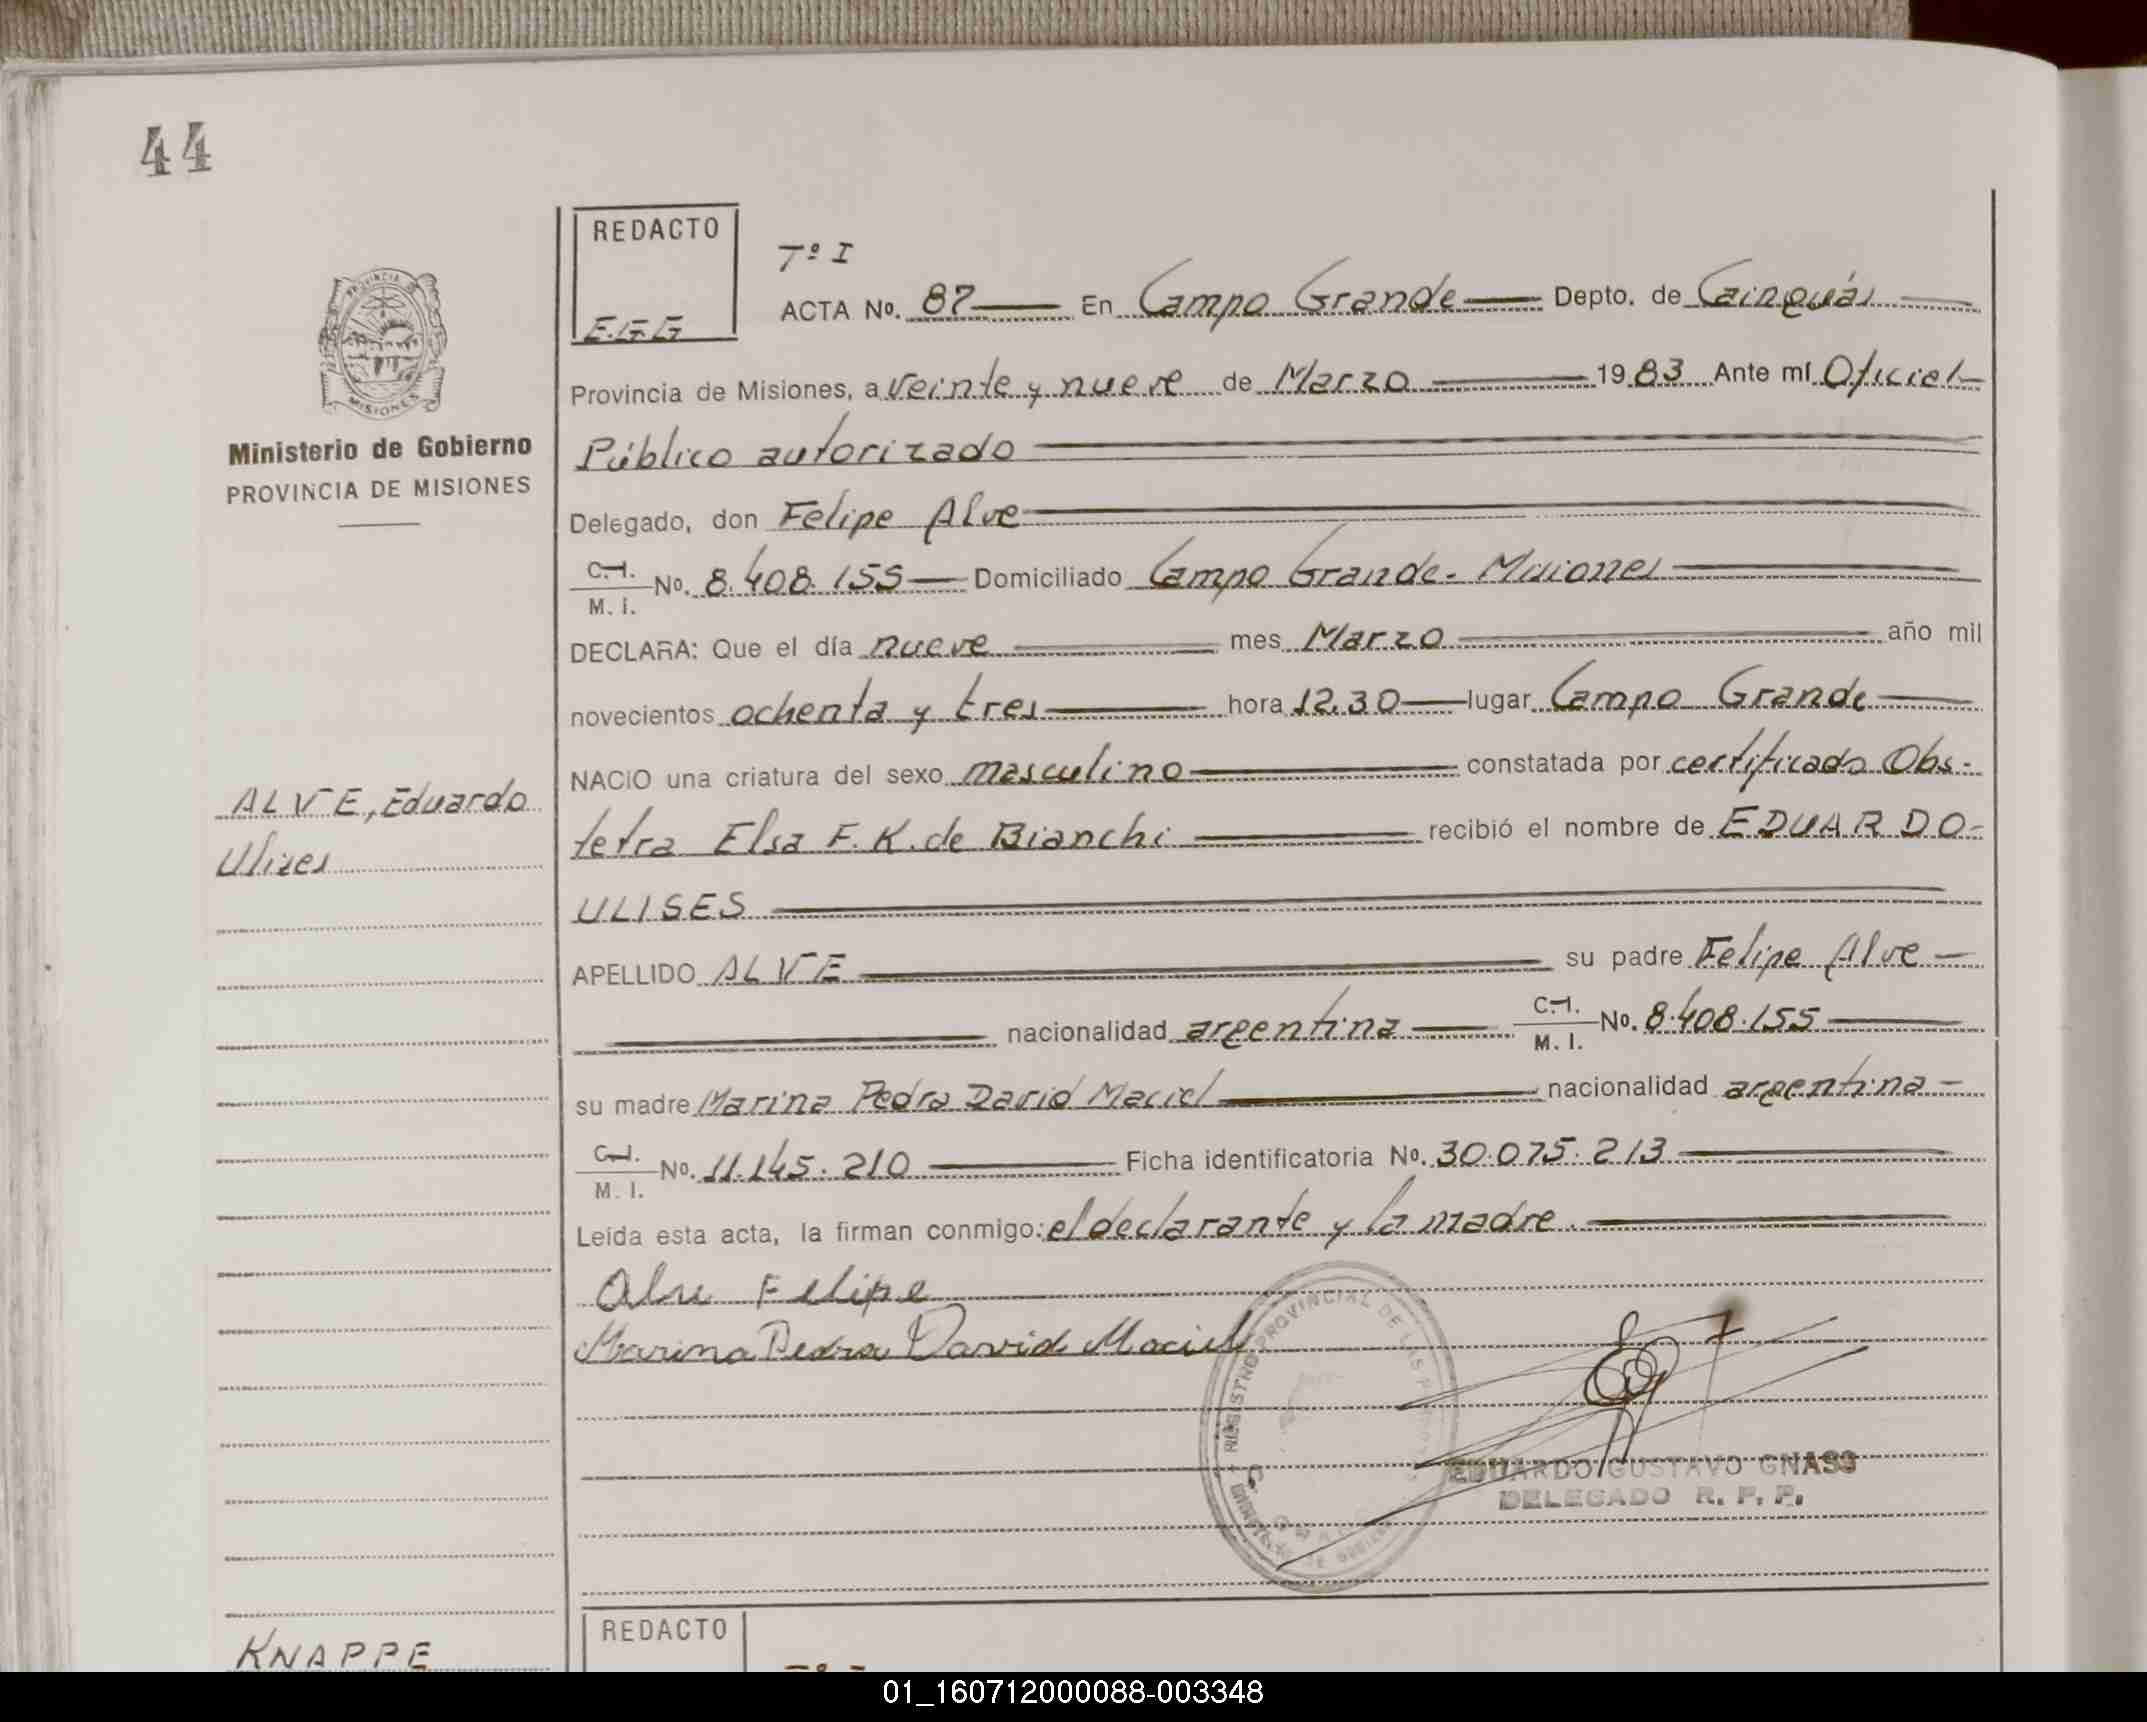 44
REDACTO
E.G.G
Tº I
ACTA No. 87 En Campo Grande Depto. de Cainguás
Provincia de Misiones, a veinte y nueve de Marzo 1983 Ante mí Oficial
Público autorizado
Delegado, don Felipe Alve
C.I.
M. I. No. 8.408.155 Domiciliado Campo Grande - Misiones
DECLARA: Que el día nueve mes Marzo año mil
novecientos ochenta y tres hora 12.30 lugar Campo Grande
NACIO una criatura del sexo masculino constatada por certificado Obs-
tetra Elsa F. K. de Bianchi recibió el nombre de EDUARDO
ULISES
APELLIDO ALVE su padre Felipe Alve
nacionalidad argentina C.I. M. I. No. 8.408.155
su madre Marina Pedra David Maciel nacionalidad argentina
C.I.
M. I. No. 11.145.210 Ficha identificatoria No. 30.075.213
Leída esta acta, la firman conmigo: el declarante y la madre.
Alve Felipe
Marina Pedra David Maciel
REGISTRO PROVINCIAL DE LAS
EDUARDO GUSTAVO GNASS
DELEGADO R. P. P.
PROVINCIA DE
MISIONES
Ministerio de Gobierno
PROVINCIA DE MISIONES
ALVE, Eduardo
Ulises
KNAPPE
REDACTO
01_160712000088-003348